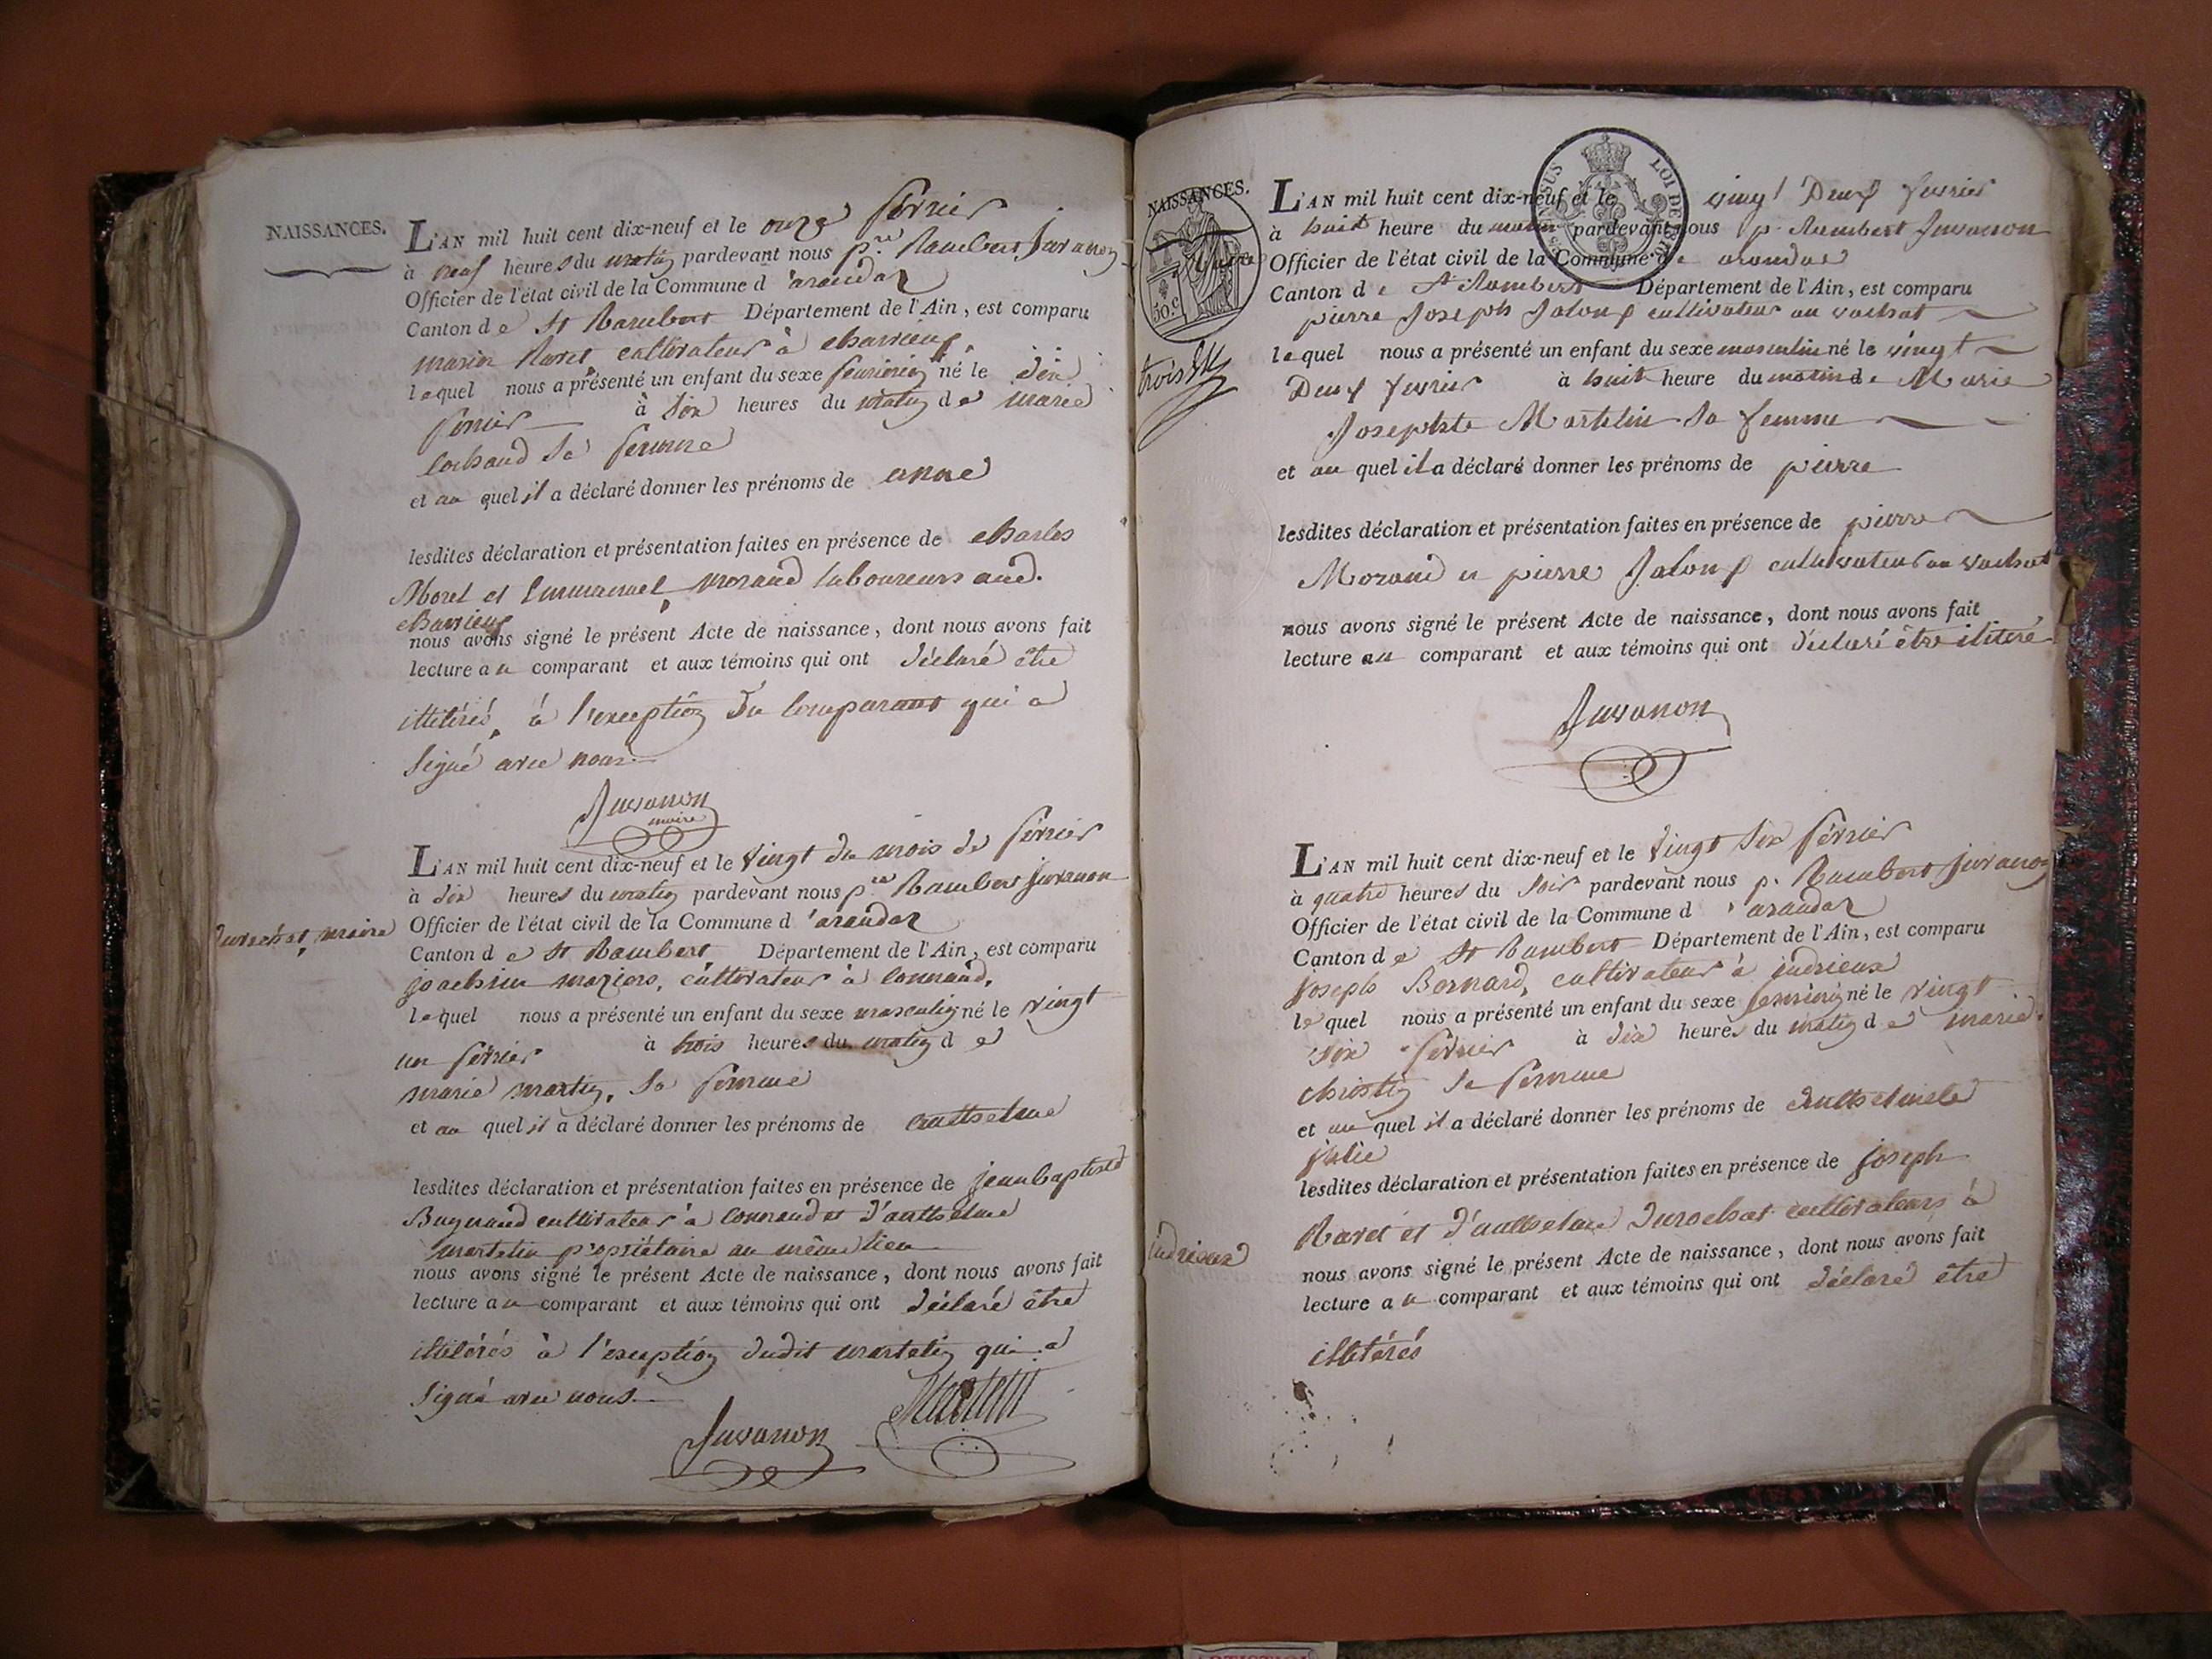 NAISSANCES.
L'AN mil huit cent dix-neuf et le onze février
à neuf heures du matin pardevant nous p.re Rambert Juvanon
Officier de l'état civil de la Commune d'arandas
Canton de St Rambert Département de l'Ain, est comparu
marin Ravet, cultivateur à charrieux,
lequel nous a présenté un enfant du sexe féminin né le dix
février à six heures du matin de marie
cochand sa femme
et au quel il a déclaré donner les prénoms de anne
lesdites déclaration et présentation faites en présence de charles
Morel et Emmanuel morand laboureurs aud.
charrieux
nous avons signé le présent Acte de naissance, dont nous avons fait
lecture au comparant et aux témoins qui ont déclaré être
illitérés, à l'exception du comparant qui a
signé avec nous
Juvanon
maire
L'AN mil huit cent dix-neuf et le vingt du mois de février
à dix heures du matin pardevant nous p.re Rambert Juvanon
maire Officier de l'état civil de la Commune d'arandas
Canton de St Rambert Département de l'Ain, est comparu
joachim maziers, cultivateur à connand,
lequel nous a présenté un enfant du sexe masculin né le vingt
un février à trois heures du matin de
marie martin, sa femme
et au quel il a déclaré donner les prénoms de anthelme
lesdites déclaration et présentation faites en présence de jean baptiste
Bugnand cultivateur à connand et d'anthelme
martelin propriétaire au même lieu
nous avons signé le présent Acte de naissance, dont nous avons fait
lecture au comparant et aux témoins qui ont déclaré être
illitérés à l'exception dudit martelin qui a
signé avec nous
Juvanon Martelin
NAISSANCES.
50.c
L'AN mil huit cent dix-neuf et le vingt Deux fevrier
à huit heure du matin pardevant nous p. Rambert Juvanon
maire Officier de l'état civil de la Commune de arandas
Canton de St Rambert Département de l'Ain, est comparu
pierre Joseph Jaloux cultivateur au vachat
lequel nous a présenté un enfant du sexe masculin né le vingt
Deux fevrier à huit heure du matin de Marie
Josephte Martelin sa femme
et au quel il a déclaré donner les prénoms de pierre
lesdites déclaration et présentation faites en présence de pierre
Morand et pierre Jaloux cultivateur au vachat
nous avons signé le présent Acte de naissance, dont nous avons fait
lecture au comparant et aux témoins qui ont déclaré être ilitéré
Juvanon
L'AN mil huit cent dix-neuf et le vingt six février
à quatre heures du soir pardevant nous p. Rambert Juvanon
Officier de l'état civil de la Commune d'arandas
Canton de St Rambert Département de l'Ain, est comparu
joseph Bernard, cultivateur à indrieux
lequel nous a présenté un enfant du sexe féminin né le vingt
six février à dix heures du matin de marie
christin sa femme
et au quel il a déclaré donner les prénoms de anthelmele
julie
lesdites déclaration et présentation faites en présence de joseph
Ravet et d'anthelme durochat cultivateurs à
indrieux
nous avons signé le présent Acte de naissance, dont nous avons fait
lecture au comparant et aux témoins qui ont déclaré être
illitérés